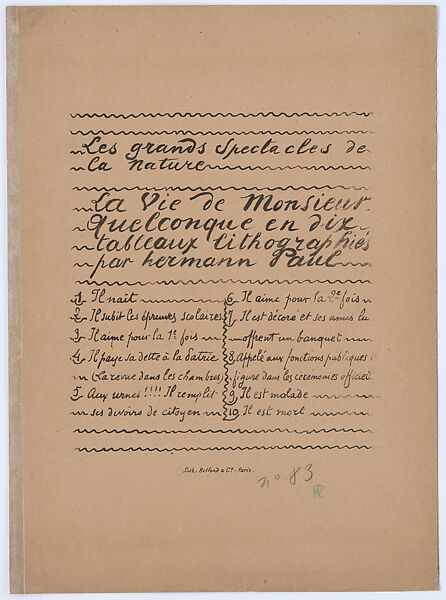 Les grands Spectacles de
la nature
La Vie de Monsieur
Quelconque en dix
tableaux lithographiés
par hermann Paul
1 Il nait
2 Il subit les épreuves scolaires
3 Il aime pour la 1e fois
4 Il paye sa dette à la patrie
(La revue dans les chambres)
5 Aux urnes !!!! Il remplit
ses devoirs de citoyen
6 Il aime pour la 2e fois
7 Il est décoré et ses amis lui
offrent un banquet
8 Appelé aux fonctions publiques il
figure dans les cérémonies officiell
9 Il est malade
10 Il est mort
Lith. Belfond & Cie. Paris.
no 83